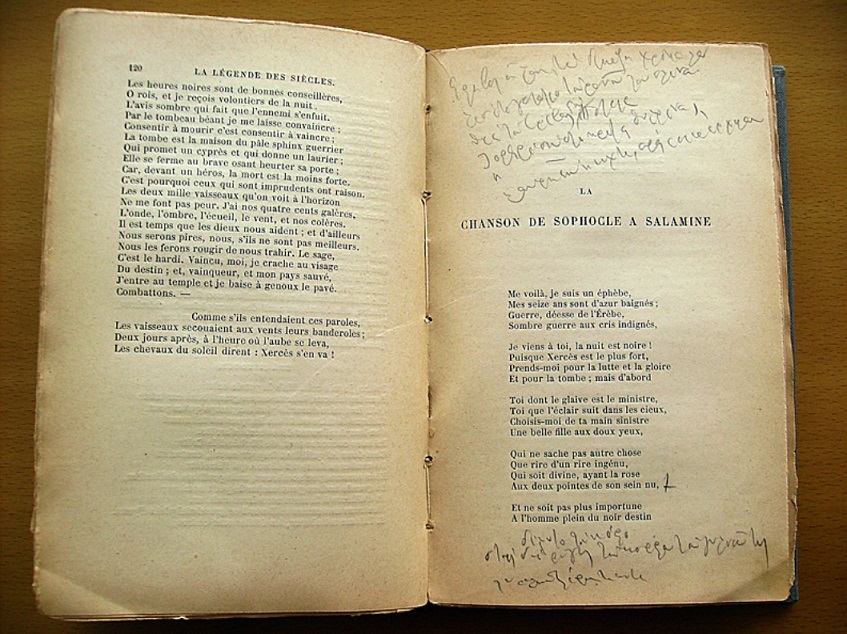 120
LA LÉGENDE DES SIÈCLES.
Les heures noires sont de bonnes conseillères,
O rois, et je reçois volontiers de la nuit
L'avis sombre qui fait que l'ennemi s'enfuit.
Par le tombeau béant je me laisse convaincre ;
Consentir à mourir c'est consentir à vaincre ;
La tombe est la maison du pâle sphinx guerrier
Qui promet un cyprès et qui donne un laurier ;
Elle se ferme au brave osant heurter sa porte ;
Car, devant un héros, la mort est la moins forte.
C'est pourquoi ceux qui sont imprudents ont raison.
Les deux mille vaisseaux qu'on voit à l'horizon
Ne me font pas peur. J'ai nos quatre cents galères,
L'onde, l'ombre, l'écueil, le vent, et nos colères.
Il est temps que les dieux nous aident ; et d'ailleurs
Nous serons pires, nous, s'ils ne sont pas meilleurs.
Nous les ferons rougir de nous trahir. Le sage,
C'est le hardi. Vaincu, moi, je crache au visage
Du destin ; et, vainqueur, et mon pays sauvé,
J'entre au temple et je baise à genoux le pavé.
Combattons. —
Comme s'ils entendaient ces paroles,
Les vaisseaux secouaient aux vents leurs banderoles ;
Deux jours après, à l'heure où l'aube se leva,
Les chevaux du soleil dirent : Xercès s'en va !
LA
CHANSON DE SOPHOCLE A SALAMINE
Me voilà, je suis un éphèbe,
Mes seize ans sont d'azur baignés ;
Guerre, déesse de l'Érèbe,
Sombre guerre aux cris indignés,
Je viens à toi, la nuit est noire !
Puisque Xercès est le plus fort,
Prends-moi pour la lutte et la gloire
Et pour la tombe ; mais d'abord
Toi dont le glaive est le ministre,
Toi que l'éclair suit dans les cieux,
Choisis-moi de ta main sinistre
Une belle fille aux doux yeux,
Qui ne sache pas autre chose
Que rire d'un rire ingénu,
Qui soit divine, ayant la rose
Aux deux pointes de son sein nu,
Et ne soit pas plus importune
A l'homme plein du noir destin